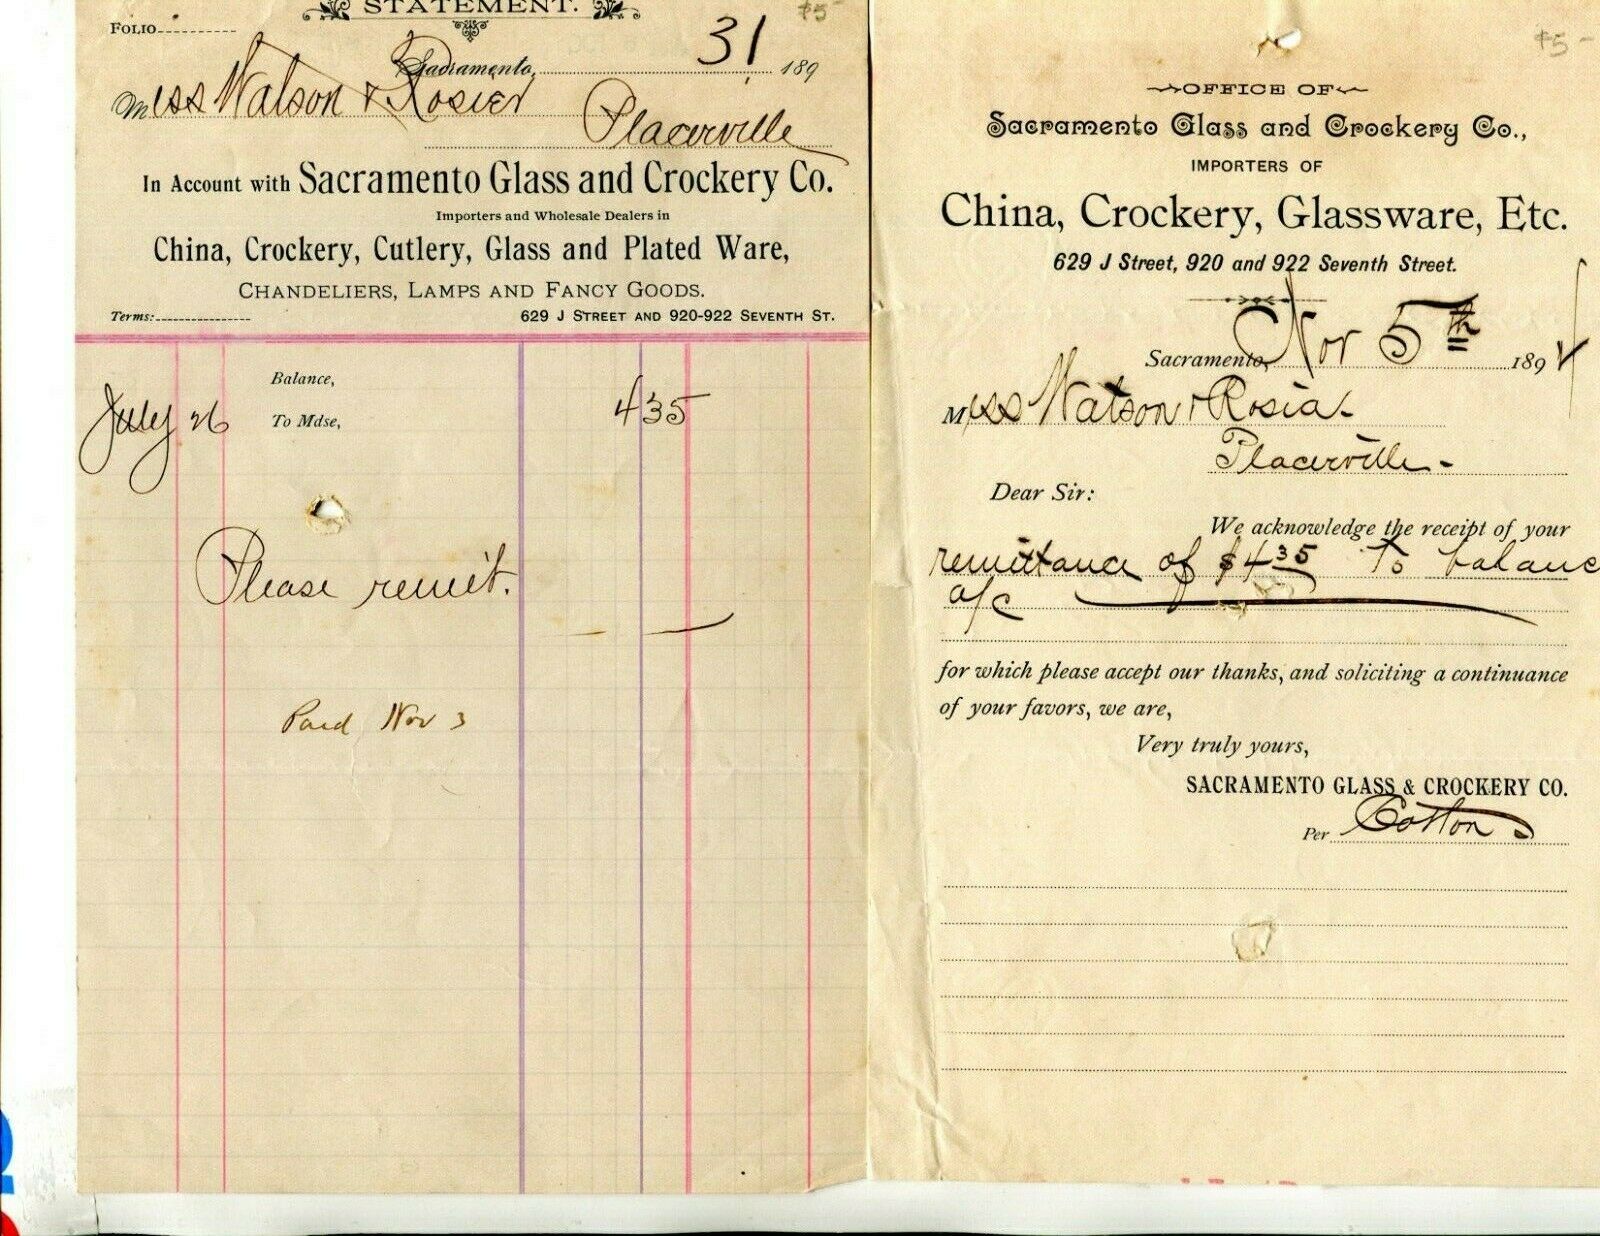 STATEMENT.
$5-
FOLIO
Sacramento, 31 189
Mess Watson & Rosier
Placerville
In Account with Sacramento Glass and Crockery Co.
Importers and Wholesale Dealers in
China, Crockery, Cutlery, Glass and Plated Ware,
CHANDELIERS, LAMPS AND FANCY GOODS.
Terms: 629 J STREET AND 920-922 SEVENTH ST.
Balance,
July 26 To Mdse, 4 35
Please remit.
Paid Nov 3
$5-
OFFICE OF
Sacramento Glass and Crockery Co.,
IMPORTERS OF
China, Crockery, Glassware, Etc.
629 J Street, 920 and 922 Seventh Street.
Sacramento, Nov 5th 1894
Mess Watson & Rosia-
Placerville-
Dear Sir:
We acknowledge the receipt of your
remittance of $4 35 To balanc
a/c
for which please accept our thanks, and soliciting a continuance
of your favors, we are,
Very truly yours,
SACRAMENTO GLASS & CROCKERY CO.
Per Cotton